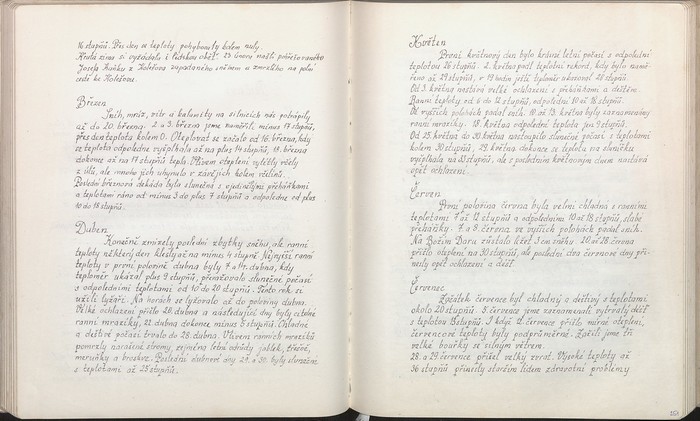 16 stupňů. Přes den se teploty pohybovaly kolem nuly.
Krutá zima si vyžádala i lidskou oběť. 23. února našli pohřešovaného
Josefa z Holešova zapadaného sněhem a zmrzlého na polní
cestě ke Holešovu.
Březen
Sníh, mráz, vítr a kalamity na silnicích nás potrápily
až do 20. března. 2. a 3. března jsme naměřili minus 17 stupňů,
přes den teploty kolem 0. Oteplovat se začalo od 16. března, kdy
se teplota odpoledne vyšplhala až na plus 14 stupňů, 18. března
dokonce až na 17 stupňů tepla. Vlivem oteplení vylétly včely
z úlů, ale mnoho jich uhynulo v závějích kolem včelínů.
Poslední březnová dekáda byla slunečná s ojedinělými přeháňkami
a teplotami ráno od minus 3 do plus 7 stupňů a odpoledne od plus
10 do 18 stupňů.
Duben
Konečně zmizely poslední zbytky sněhu, ale ranní
teploty některý den klesly až na minus 4 stupně. Nejvyšší ranní
teploty v první polovině dubna byly 7. a 14. dubna, kdy
teploměr ukázal plus 9 stupňů, převažovalo slunečné počasí
s odpoledními teplotami od 10 do 20 stupňů. Tento rok si
užili lyžaři. Na horách se lyžovalo až do poloviny dubna.
Velké ochlazení přišlo 20. dubna a následující dny byly citelné
ranní mrazíky, 22. dubna dokonce minus 5 stupňů. Chladné
a deštivé počasí trvalo do 28. dubna. Vlivem ranních mrazíků
pomrzly nasazené stromy, zejména letní odrůdy jablek, třešně,
meruňky a broskve. Poslední dubnové dny 29. a 30. byly slunečné
s teplotami až 25 stupňů.
Květen
První květnový den bylo krásné letní počasí s odpolední
teplotou 28 stupňů. 2. května padl teplotní rekord, kdy bylo namě-
řeno až 29 stupňů, v 19 hodin ještě teploměr ukazoval 28 stupňů.
Od 3. května nastává velké ochlazení s přeháňkami a deštěm.
Ranní teploty od 6 do 12 stupňů, odpolední 10 až 18 stupňů.
Ve vyšších polohách padal sníh. 10. až 13. května byly zaznamenány
ranní mrazíky. 18. května odpolední teplota jen 9 stupňů.
Od 25. května do 29. května nastoupilo slunečné počasí s teplotami
kolem 30 stupňů, 29. května dokonce se teplota na sluníčku
vyšplhala na stupňů, ale s posledním květnovým dnem nastává
opět ochlazení.
Červen
První polovina června byla velmi chladná s ranními
teplotami 7 až 12 stupňů a odpoledními 10 až 18 stupňů, slabé
přeháňky. 7. a 8. června ve vyšších polohách padal sníh.
Na Božím Daru zůstalo ležet 3 cm sněhu. 20. až 28. června
přišlo oteplení na 30 stupňů, ale poslední dva červnové dny při-
nesly opět ochlazení a déšť.
Červenec
Začátek července byl chladný a deštivý s teplotami
okolo 20 stupňů. 5. července jsme zaznamenali vytrvalý déšť
s teplotou 15 stupňů. I když 12. července přišlo mírné oteplení,
červencové teploty byly podprůměrné. Zažili jsme tři
velké bouřky se silným větrem.
28. a 29. července přišel velký zvrat. Vysoké teploty až
36 stupňů přinesly starším lidem zdravotní problémy